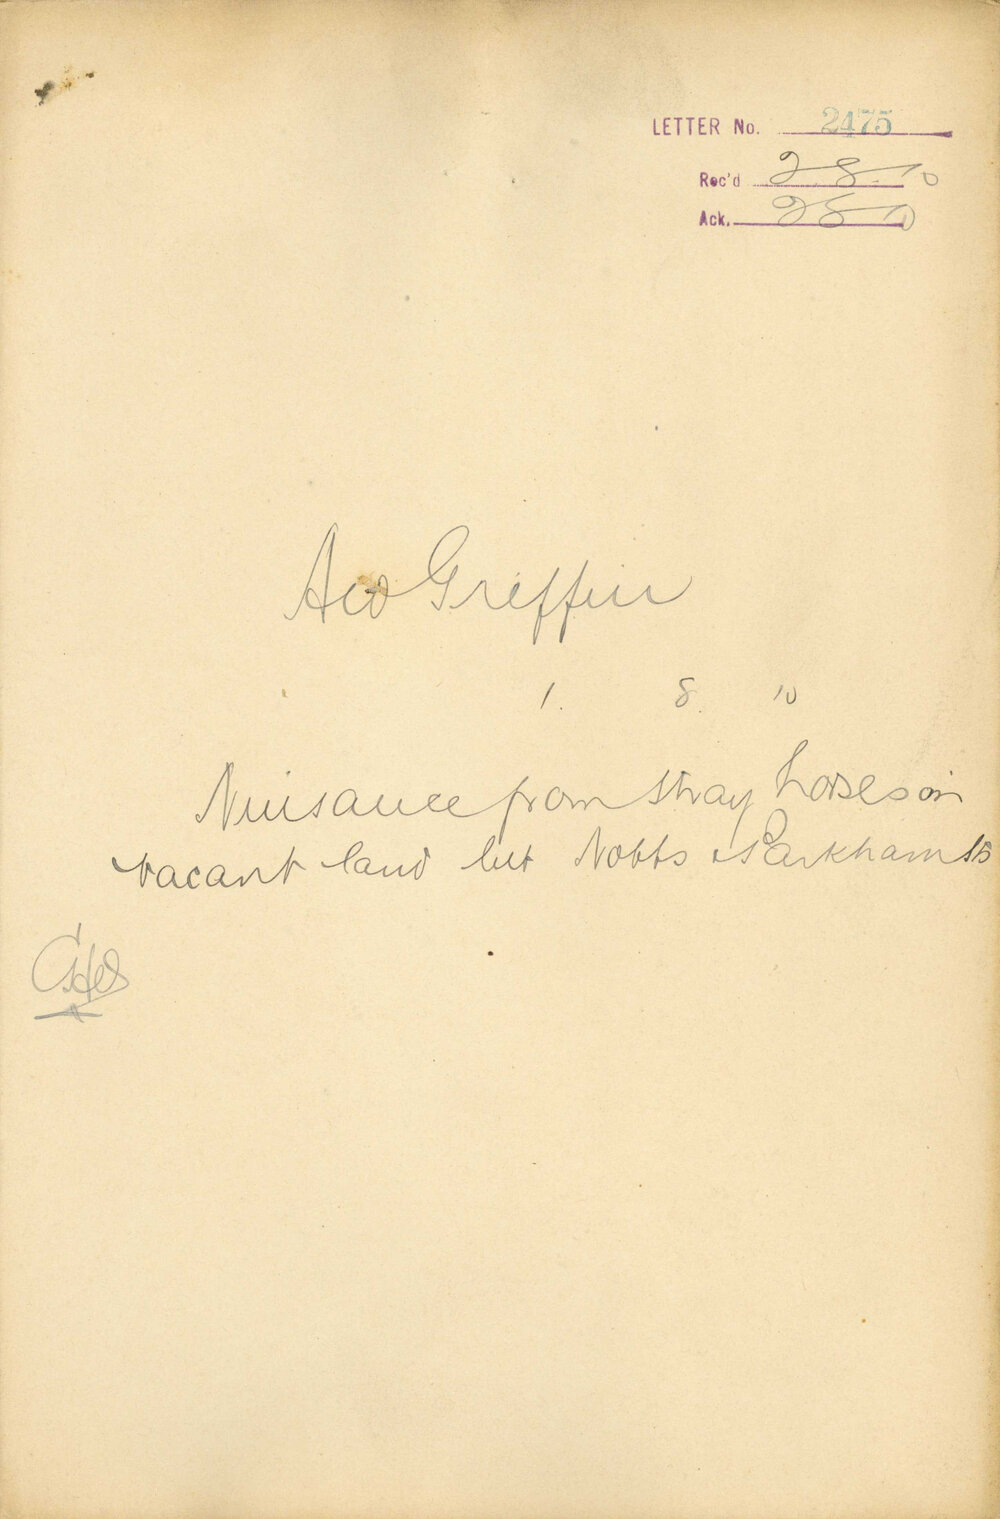 LETTER No. 2475
Rec'd 2. 8. 10
Ack. 2 8 10
Griffin
1. 8. 10
Nuisance from stray horses on
vacant land bet Nobbs & Parkham Sts